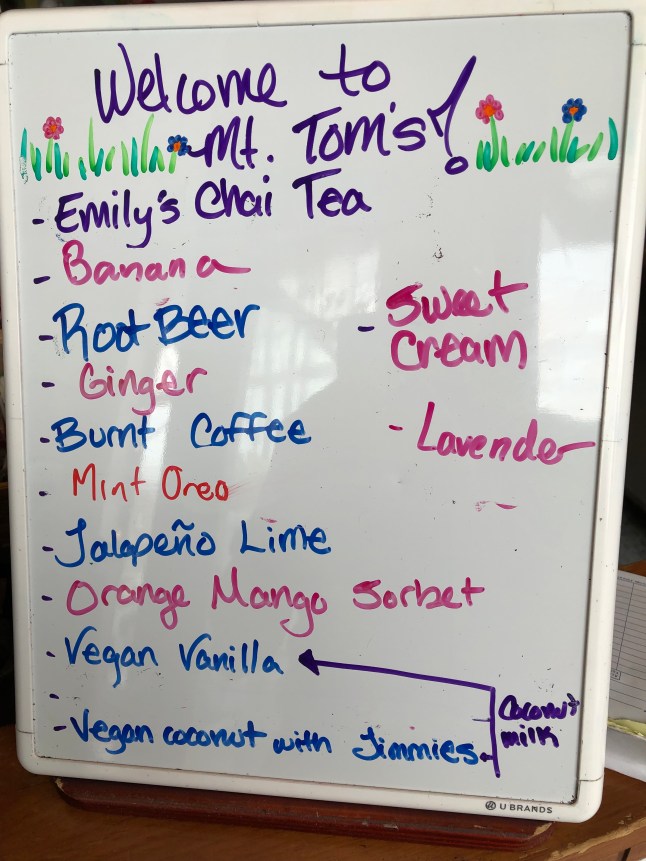 Welcome to
Mt. Tom's!
- Emily's Chai Tea
- Banana
- Root Beer
- Ginger
- Burnt Coffee
- Mint Oreo
- Jalapeño Lime
- Orange Mango Sorbet
- Vegan Vanilla
-
- Vegan coconut with Jimmies
- Sweet
Cream
- Lavender
Coconut
milk
U BRANDS